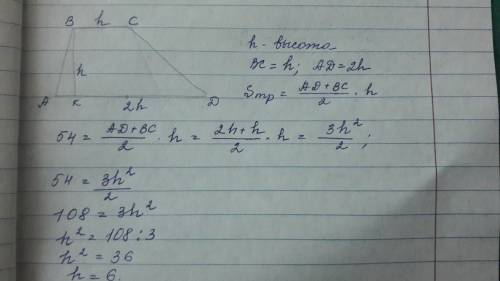 B h C
h - высота
h
BC = h; AD = 2h
A K 2h D
Sтр = (AD + BC)/2 · h
54 = (AD + BC)/2 · h = (2h + h)/2 · h = 3h²/2;
54 = 3h²/2
108 = 3h²
h² = 108 : 3
h² = 36
h = 6.